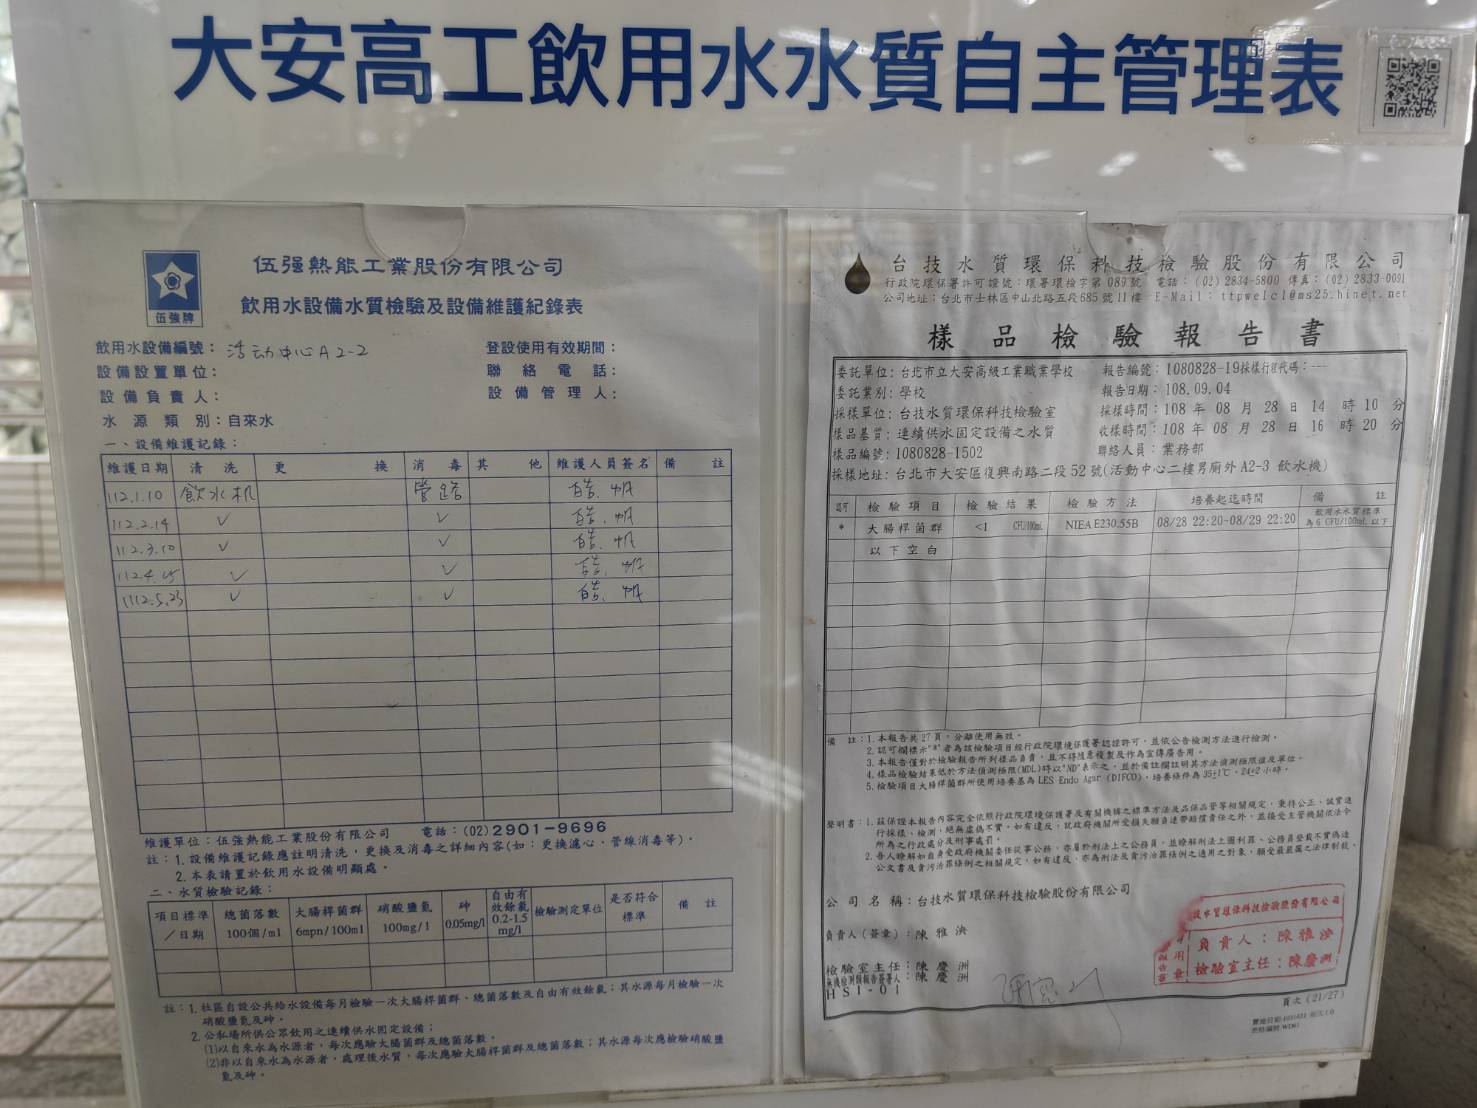 大安高工飲用水水質自主管理表
伍強牌
伍强熱能工業股份有限公司
飲用水設備水質檢驗及設備維護紀錄表
飲用水設備編號：活动中心A2-2
登設使用有效期間：
設備設置單位：
聯絡電話：
設備負責人：
設備管理人：
水源類別：自來水
一、設備維護記錄：
維護日期 清洗 更換 消毒 其他 維護人員簽名 備註
112.1.10 飲水机 管路
112.2.14 ✓ ✓
112.3.10 ✓ ✓
112.4.25 ✓ ✓
112.5.23 ✓ ✓
維護單位：伍強熱能工業股份有限公司 電話：(02)2901-9696
註：1.設備維護記錄應註明清洗，更換及消毒之詳細內容(如：更換濾心、管線消毒等)。
2.本表請置於飲用水設備明顯處。
二、水質檢驗記錄：
項目標準／日期 總菌落數 100個/ml 大腸桿菌群 6mpn/100ml 硝酸鹽氮 100mg/l 砷 0.05mg/l 自由有效餘氯 0.2-1.5 mg/l 檢驗測定單位 是否符合標準 備註
註：1.社區自設公共給水設備每月檢驗一次大腸桿菌群、總菌落數及自由有效餘氯；其水源每月檢驗一次
硝酸鹽氮及砷。
2.公私場所供公眾飲用之連續供水固定設備；
(1)以自來水為水源者，每次應驗大腸菌群及總菌落數。
(2)非以自來水為水源者，處理後水質，每次應驗大腸桿菌群及總菌落數；其水源每次應檢驗硝酸鹽
氮及砷。
台技水質環保科技檢驗股份有限公司
行政院環保署許可證號：環署環檢字第089號 電話：(02)2834-5800 傳真：(02)2833-0091
公司地址：台北市士林區中山北路五段685號11樓 E-Mail：ttpwelcl@ms25.hinet.net
樣品檢驗報告書
委託單位：台北市立大安高級工業職業學校 報告編號：1080828-19採樣行程代碼：---
委託業別：學校 報告日期：108.09.04
採樣單位：台技水質環保科技檢驗室 採樣時間：108年08月28日14時10分
樣品基質：連續供水固定設備之水質 收樣時間：108年08月28日16時20分
樣品編號：1080828-1502 聯絡人員：業務部
採樣地址：台北市大安區復興南路二段52號(活動中心二樓男廁外A2-3飲水機)
認可 檢驗項目 檢驗結果 檢驗方法 培養起迄時間 備註
* 大腸桿菌群 <1 CFU/100mL NIEA E230.55B 08/28 22:20-08/29 22:20 飲用水水質標準為6 CFU/100mL以下
以下空白
備註：1.本報告共27頁，分離使用無效。
2.認可欄標示"*"者為該檢驗項目經行政院環境保護署認證許可，並依公告檢測方法進行檢測。
3.本報告僅對於檢驗報告所列樣品負責，且不得隨意複製及作為宣傳廣告用。
4.樣品檢驗結果低於方法偵測極限(MDL)時以"ND"表示之，並於備註欄註明其方法偵測極限值及單位。
5.檢驗項目大腸桿菌群所使用培養基為LES Endo Agar (DIFCO)，培養條件為35±1℃，24±2小時。
聲明書：1.茲保證本報告內容完全依照行政院環境保護署及有關機構之標準方法及品保品管等相關規定，秉持公正、誠實進
行採樣、檢測，絕無虛偽不實，如有違反，就政府機關所受損失願負連帶賠償責任之外，並接受主管機關依法令
所為之行政處分及刑事處罰。
2.吾人瞭解如自身受政府機關委任從事公務，亦屬於刑法上之公務員，並瞭解刑法上圖利罪、公務員登載不實偽造
公文書及貪污治罪條例之相關規定，如有違反，亦為刑法及貪污治罪條例之適用之對象，願受最嚴厲之法律制裁。
公司名稱：台技水質環保科技檢驗股份有限公司
負責人(簽章)：陳雅泱
檢驗室主任：陳慶洲
無機檢測類報告簽署人：陳慶洲
HSI-01
技水質環保科技檢驗股份有限公司
報告專用章
負責人：陳雅泱
檢驗室主任：陳慶洲
頁次(21/27)